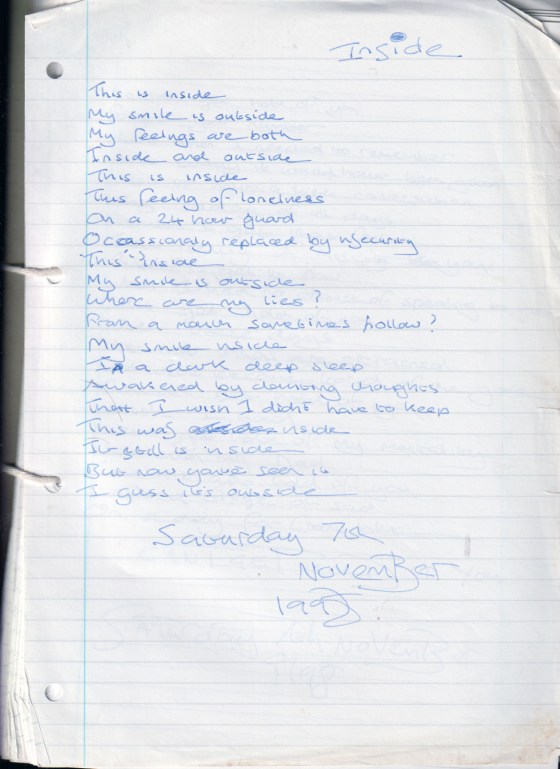 Inside
This is inside
My smile is outside
My feelings are both
Inside and outside
This is inside
This feeling of loneliness
On a 24 hour guard
Occassionaly replaced by insecurity
This is inside
My smile is outside
Where are my lies?
From a mouth sometimes hollow?
My smile inside
In a dark deep sleep
Awakened by daunting thoughts
That I wish I didnt have to keep
This was inside
It still is inside
But now youve seen it
I guss it's outside
Saturday 7th
November